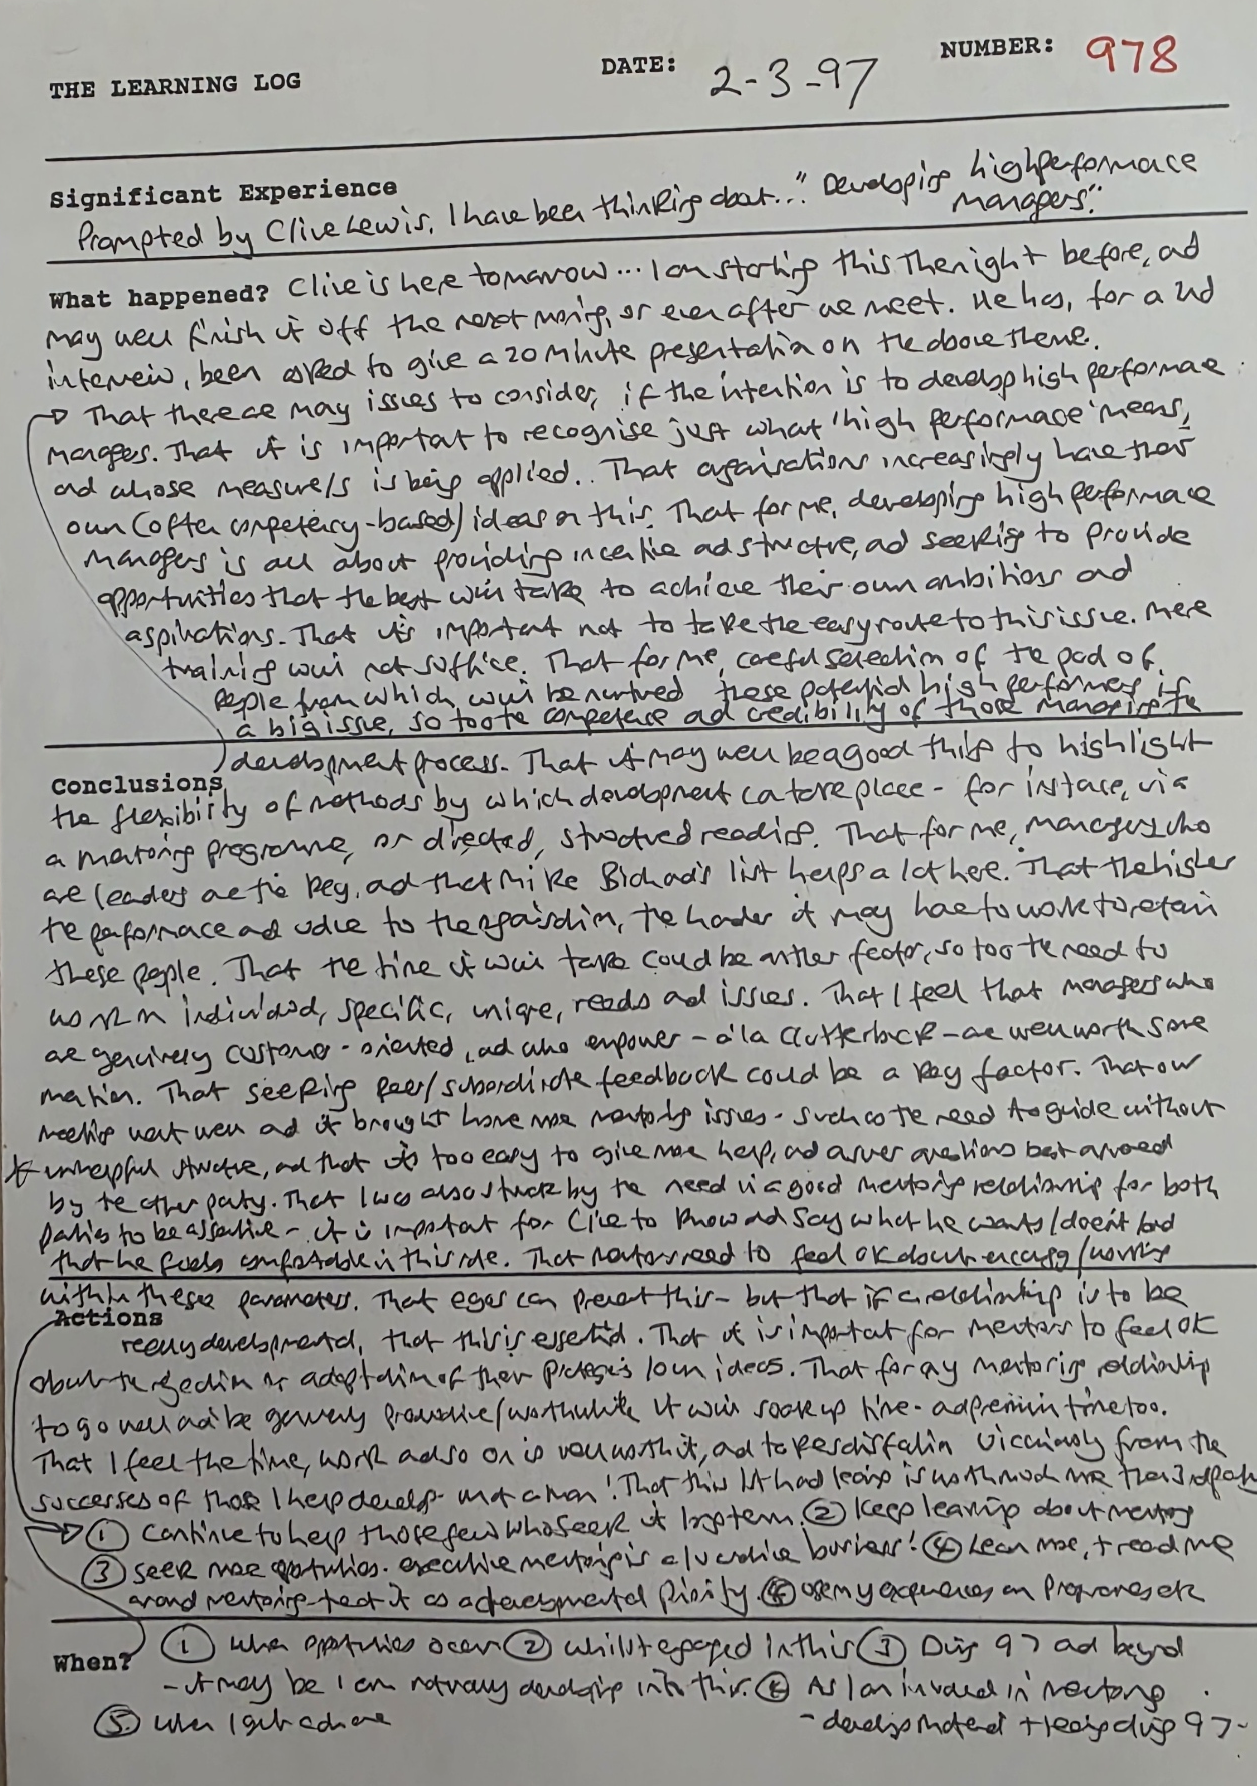 THE LEARNING LOG
DATE: 2-3-97
NUMBER: 978
Significant Experience
Prompted by Clive Lewis, I have been thinking about..." Developing high performance
managers".
What happened? Clive is here tomorrow... I am starting this the night before, and
may well finish it off the next morning, or even after we meet. He has, for a 2nd
interview, been asked to give a 20 minute presentation on the above theme.
→ That there are many issues to consider, if the intention is to develop high performance
managers. That it is important to recognise just what 'high performance' means,
and whose measure/s is being applied.. That organisations increasingly have their
own (often competency-based) ideas on this. That for me, developing high performance
managers is all about providing incentive and structure, and seeking to provide
opportunities that the best will take to achieve their own ambitions and
aspirations. That it's important not to take the easy route to this issue. Mere
training will not suffice. That for me, careful selection of the pool of
people from which will be nurtured these potential high performers is
a big issue, so too the competence and credibility of those managing the
development process. That it may well be a good thing to highlight
Conclusions
the flexibility of methods by which development can take place - for instance, via
a mentoring programme, or directed, structured reading. That for me, managers who
are leaders are the key, and that Mike Bichard's list helps a lot here. That the higher
the performance and value to the organisation, the harder it may have to work to retain
these people. That the time it will take could be another factor, so too the need to
work on individual, specific, unique, needs and issues. That I feel that managers who
are genuinely customer-oriented, and who empower - a'la Clutterbuck - are well worth some
mention. That seeking peer/subordinate feedback could be a key factor. That our
meeting went well and it brought home more mentoring issues - such as the need to guide without
* unhelpful structure, and that it's too easy to give more help, and answer questions best answered
by the other party. That I was also struck by the need in a good mentoring relationship for both
parties to be assertive - it is important for Clive to know and say what he wants/doesn't and
that he feels comfortable in this role. That mentors need to feel OK about encouraging/working
within these parameters. That egos can prevent this - but that if a relationship is to be
Actions
really developmental, that this is essential. That it is important for mentors to feel OK
about the rejection or adaptation of their protege's/own ideas. That for any mentoring relationship
to go well and be genuinely productive/worthwhile it will soak up time - and premium time too.
That I feel the time, work and so on is well worth it, and take satisfaction vicariously from the
successes of those I help develop - not a moan! That this 1st hand learning is worth much more than 3rd party
→ ① Continue to help those few who seek it long term. ② Keep learning about mentoring
③ Seek more opportunities. executive mentoring is a lucrative business! ④ Learn more, + read more
around mentoring - treat it as a developmental priority. ⑤ use my experiences on programmes etc
When? ① When opportunities occur ② whilst engaged in this ③ During 97 and beyond
- it may be I am naturally developing into this. ④ As I am involved in mentoring
- develop material + learning during 97-
⑤ when I get a chance